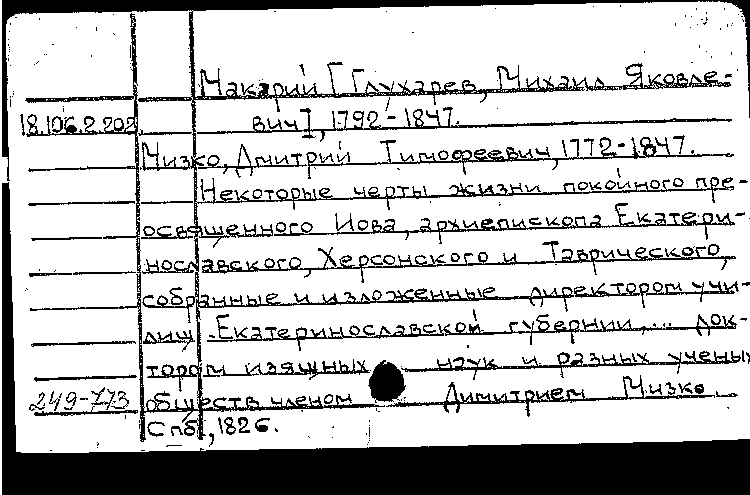 Макарий [Глухарев, Михаил Яковле-
18.106.2.202. вич], 1792-1847.
Мизко, Дмитрий Тимофеевич, 1772-1847.
Некоторые черты жизни покойного пре-
освященного Иова, архиепископа Екатери-
нославского, Херсонского и Таврического,
собранные и изложенные директором учи-
лищ Екатеринославской губернии,... док-
тором изящных наук и разных ученых
249-773 обществ членом Димитрием Мизко.
Спб., 1826.